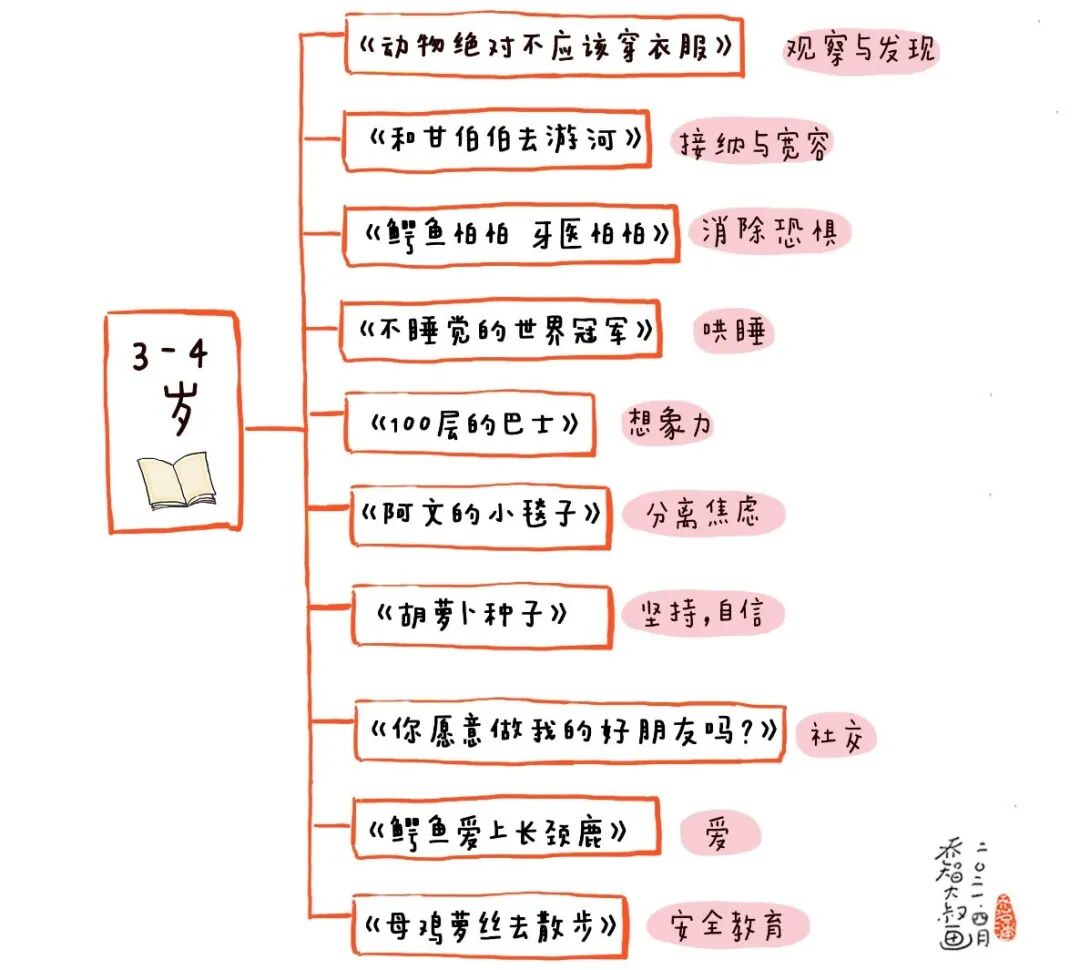 3-4
岁
《动物绝对不应该穿衣服》 观察与发现
《和甘伯伯去游河》 接纳与宽容
《鳄鱼怕怕 牙医怕怕》 消除恐惧
《不睡觉的世界冠军》 哄睡
《100层的巴士》 想象力
《阿文的小毯子》 分离焦虑
《胡萝卜种子》 坚持,自信
《你愿意做我的好朋友吗?》 社交
《鳄鱼爱上长颈鹿》 爱
《母鸡萝丝去散步》 安全教育
二〇二一.四月
乔智大叔画